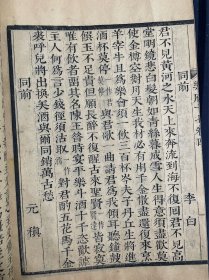 同前 李白
君不見黃河之水天上來奔流到海不復回君不見高
堂明鏡悲白髮朝如青絲暮成雪人生得意須盡歡莫
使金樽空對月天生我材必有用千金散盡還復來烹
羊宰牛且爲樂會須一飲三百杯岑夫子丹丘生將進
酒杯莫停與君歌一曲請君爲我傾耳聽鐘鼓
玉不足貴但願長醉不復醒古來聖賢皆寂寞
唯有飲者留其名陳王昔時宴平樂斗酒十千恣歡謔
主人何爲言少錢徑須沽取對君酌五花馬千金
裘呼兒將出換美酒與爾同銷萬古愁
同前 元稹